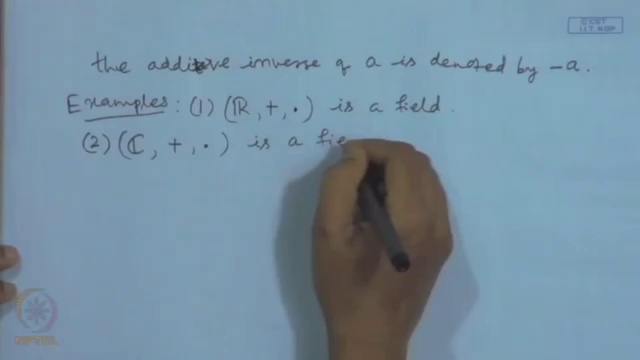 CCET
I.I.T. KGP
the additive inverse of a is denoted by -a.
Examples : (1) (ℝ, +, ·) is a field.
(2) (ℂ, +, ·) is a fie
NPTEL